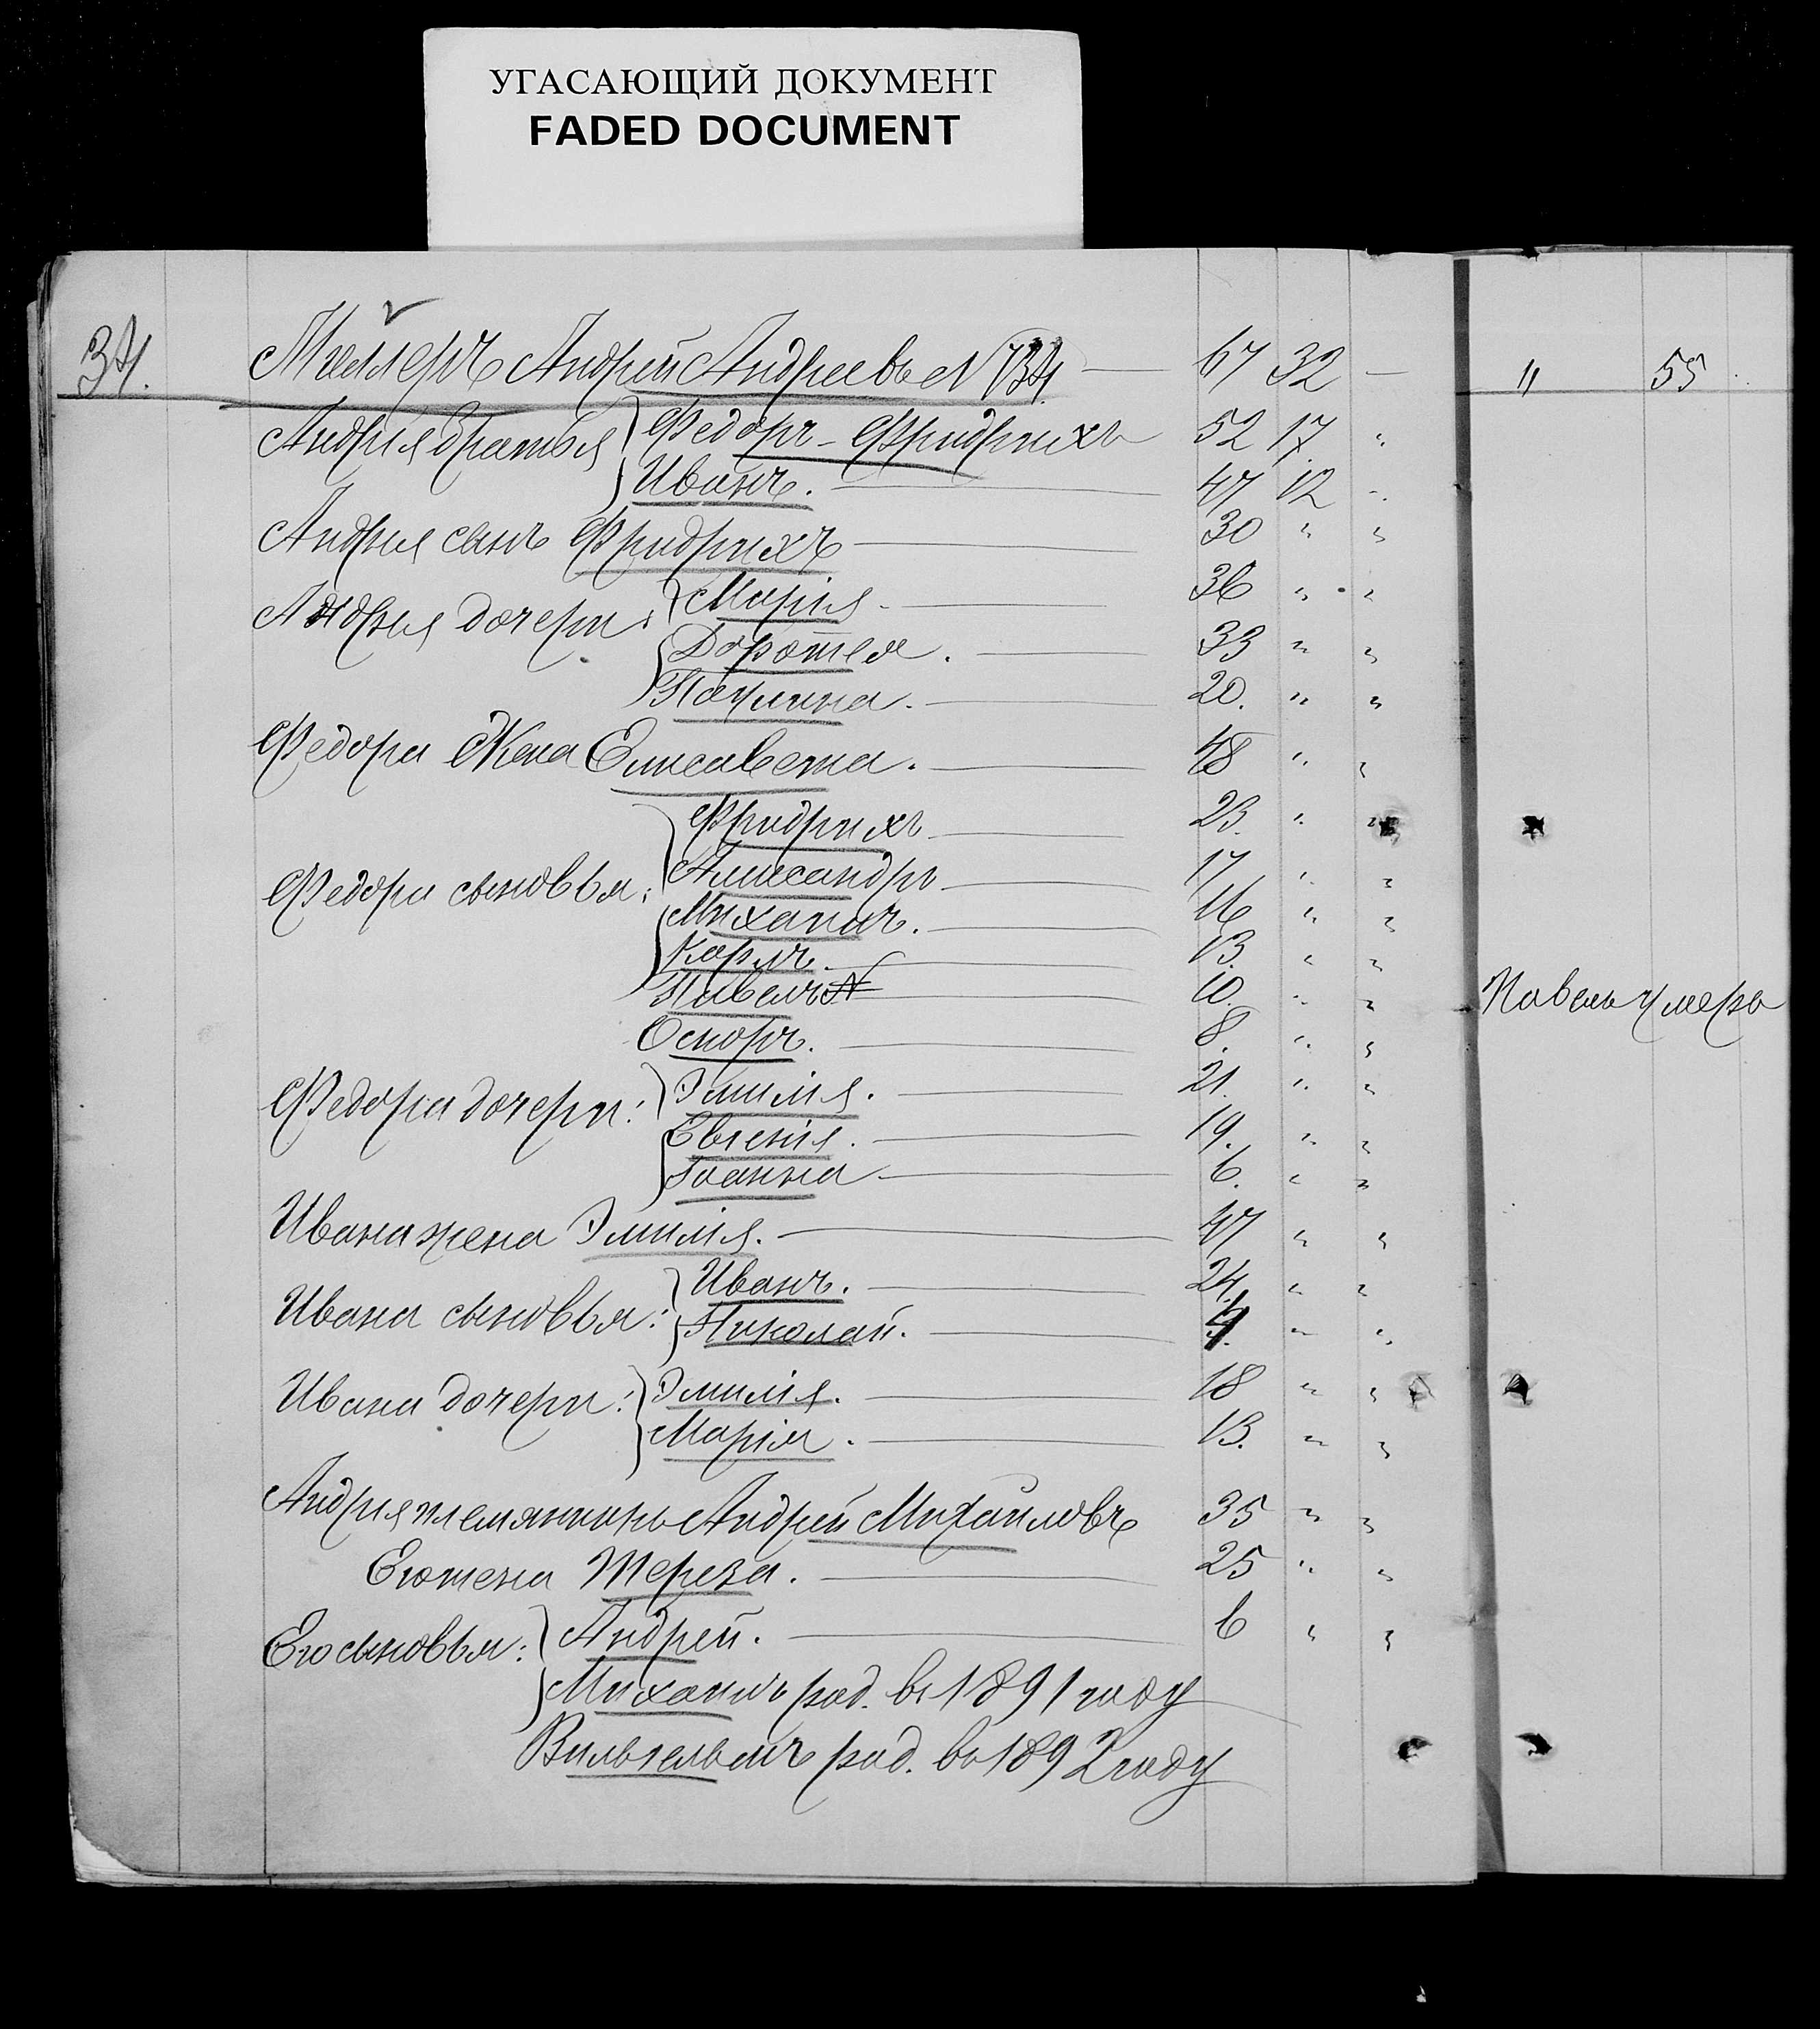 УГАСАЮЩИЙ ДОКУМЕНТ
FADED DOCUMENT
34. Миллеръ Андрей Андреевъ N 134. — 67 32 — " 55
Андрея братья { Федоръ-Фридрихъ 52 17. "
Иванъ. — 47 12 "
Андрея сынъ Фридрихъ — 30 " "
Андрея дочери: { Марія — 36 " "
Доротея. — 33 " "
Паулина. — 20. " "
Федора Жена Елисавета. — 48 " "
Фридрихъ — 23. " "
Александръ — 17 " "
Федора сыновья: { Михаилъ. — 16 " "
Карлъ. — 13. " "
Павелъ — 10. " " Павелъ умеръ
Оскаръ. — 8. " "
Федора дочери: { Эмилія. — 21. " "
Евгенія. — 19. " "
Іоанна — 6. " "
Ивана жена Эмилія. — 47 " "
Ивана сыновья: { Иванъ. — 24. " "
Николай. — 4. " "
Ивана дочери: { Эмилія. — 18 " "
Марія. — 13. " "
Андрея племянникъ Андрей Михайловъ 35 " "
Его жена Тереза. — 25 " "
Его сыновья: { Андрей. — 6 " "
Михаилъ род. въ 1891 году
Вильгельмъ род. въ 1892 году